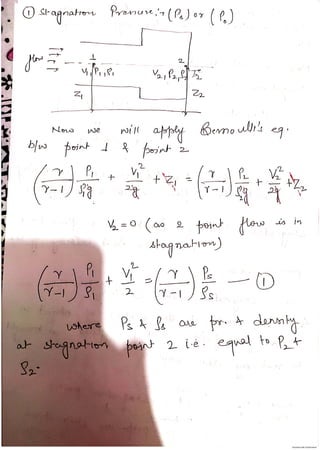 ① Stagnation Pressure, is (Ps) or (Po)
flow
1
2
V1, P1, ρ1
V2, P2, ρ2
Z1
Z2
Now we will apply Bernoulli's eq.
b/w point 1 & point 2
(γ/γ-1) P1/ρ1g + V1²/2g + Z1 = (γ/γ-1) P2/ρ2g + V2²/2g + Z2
V2 = 0 (as 2 point flow is in
stagnation)
(γ/γ-1) P1/ρ1 + V1²/2 = (γ/γ-1) Ps/ρs — ①
where Ps & ρs are pr. & density
at stagnation point 2 i.e. equal to P2 &
ρ2.